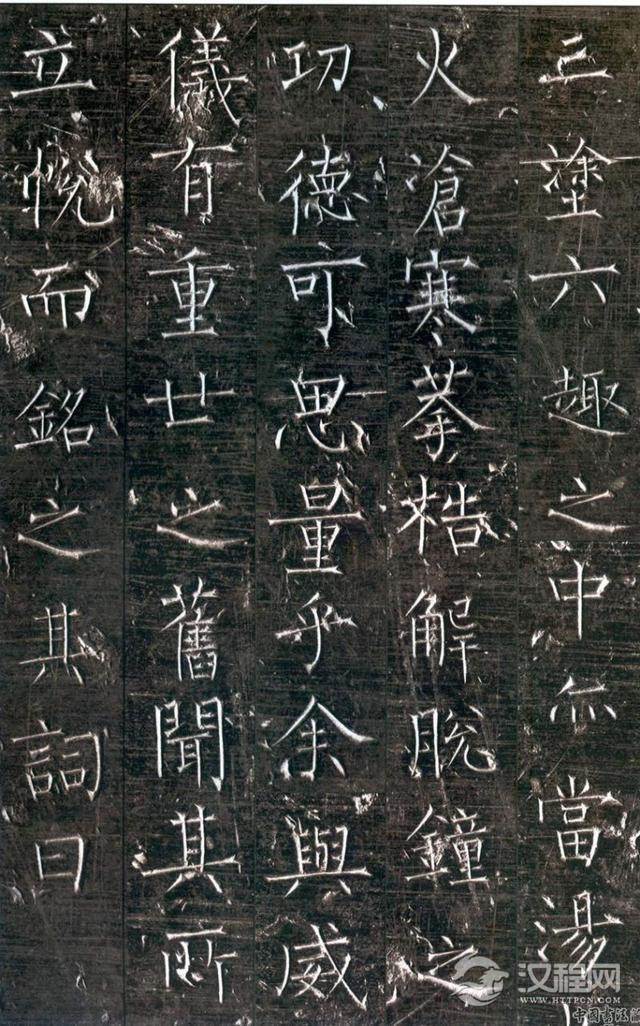 三塗六趣之中亦當湯
火滄寒荼梏解脫鐘之
功德可思量乎余與威
儀有重世之舊聞其所
立悅而銘之其詞曰
汉程网
WWW.HTTPCN.COM
中國書法網